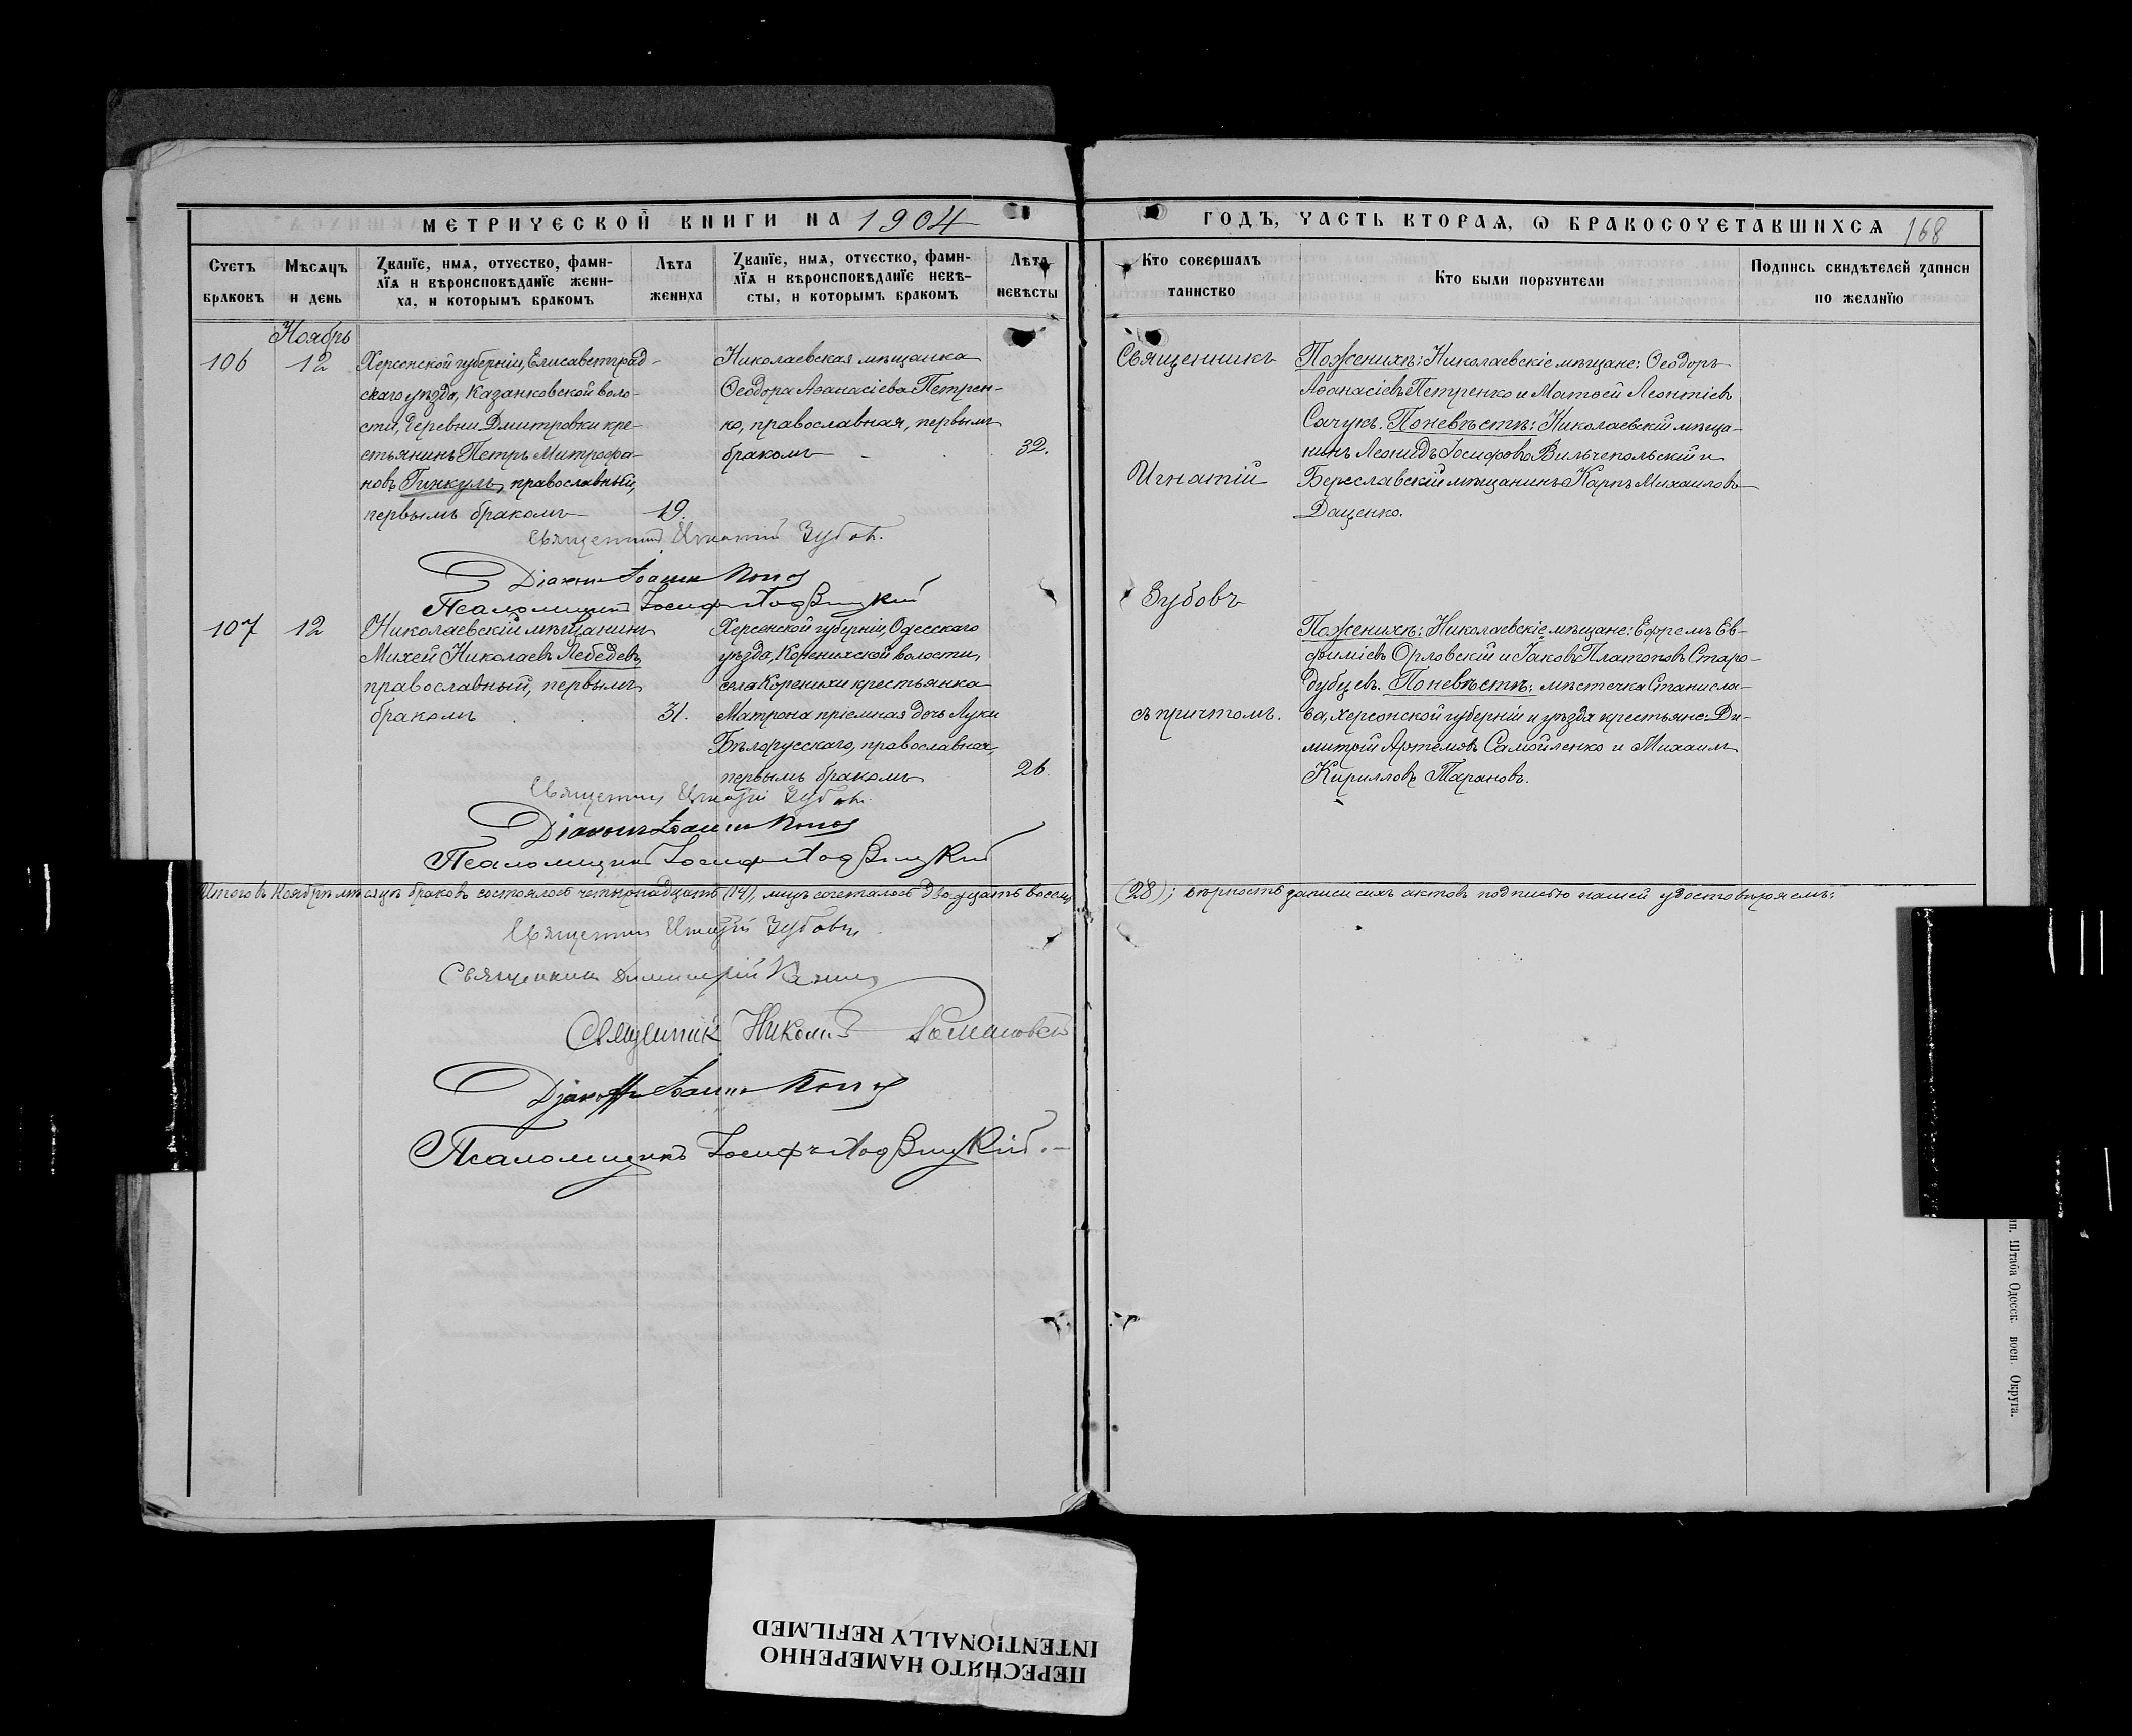 МЕТРИЧЕСКОЙ КНИГИ НА 1904
ГОДЪ, ЧАСТЬ ВТОРАЯ, Ѡ БРАКОСОЧЕТАВШИХСЯ 168
Счетъ браковъ
Мѣсяцъ и день
Званїе, имя, отчество, фами-
лїя и вѣроисповѣданїе жени-
ха, и которымъ бракомъ
Лѣта жениха
Званїе, имя, отчество, фами-
лїя и вѣроисповѣданїе невѣ-
сты, и которымъ бракомъ
Лѣта невѣсты
Кто совершалъ таинство
Кто были поручители
Подпись свидѣтелей записи по желанїю
Ноябрь
106
12
Херсонской губерніи, Елисаветград-
скаго уѣзда, Казанковской воло-
сти, деревни Дмитровки кре-
стьянинъ Петръ Митрофа-
новъ Гинкулъ, православный,
первымъ бракомъ
19.
Николаевская мѣщанка
Ѳеодора Аѳанасіева Петрен-
ко, православная, первымъ
бракомъ
32.
Священникъ
Игнатій
Зубовъ
съ причтомъ.
По женихѣ: Николаевскіе мѣщане: Ѳеодоръ
Аѳанасіевъ Петренко и Матѳей Леонтіевъ
Сачукъ. По невѣстѣ: Николаевскій мѣща-
нинъ Леонидъ Іосифовъ Вильчепольскій и
Береславскій мѣщанинъ Карпъ Михаиловъ
Даценко.
Священник Игнатій Зубовъ.
Діаконъ Іоаннъ
Псаломщикъ Іосифъ
107
12
Николаевскій мѣщанинъ
Михей Николаевъ Лебедевъ,
православный, первымъ
бракомъ
31.
Херсонской губерніи, Одесскаго
уѣзда, Коренихской волости,
села Коренихи крестьянка
Матрона пріемная дочь Луки
Бѣлорусскаго, православная,
первымъ бракомъ
26.
По женихѣ: Николаевскіе мѣщане: Ефремъ Ев-
фиміевъ Орловскій и Іаковъ Платоновъ Старо-
дубцевъ. По невѣстѣ: мѣстечка Станисла-
ва, Херсонской губерніи и уѣзда крестьяне: Ди-
митрій Артемовъ Самойленко и Михаилъ
Кирилловъ Тарановъ.
Священник Игнатій Зубовъ.
Діаконъ Іоаннъ
Псаломщикъ Іосифъ
Итого въ Ноябрѣ мѣсяцѣ браковъ состоялось четырнадцать (14), лицъ сочеталось двадцать восемь (28); вѣрность записи сихъ актовъ подписью нашей удостовѣряемъ:
Священник Игнатій Зубовъ
Священникъ Димитрій
Священникъ Николай
Діаконъ Іоаннъ
Псаломщикъ Іосифъ
Штаба Одесск. воен. Округа.
ПЕРЕСНЯТО НАМЕРЕННО
INTENTIONALLY REFILMED